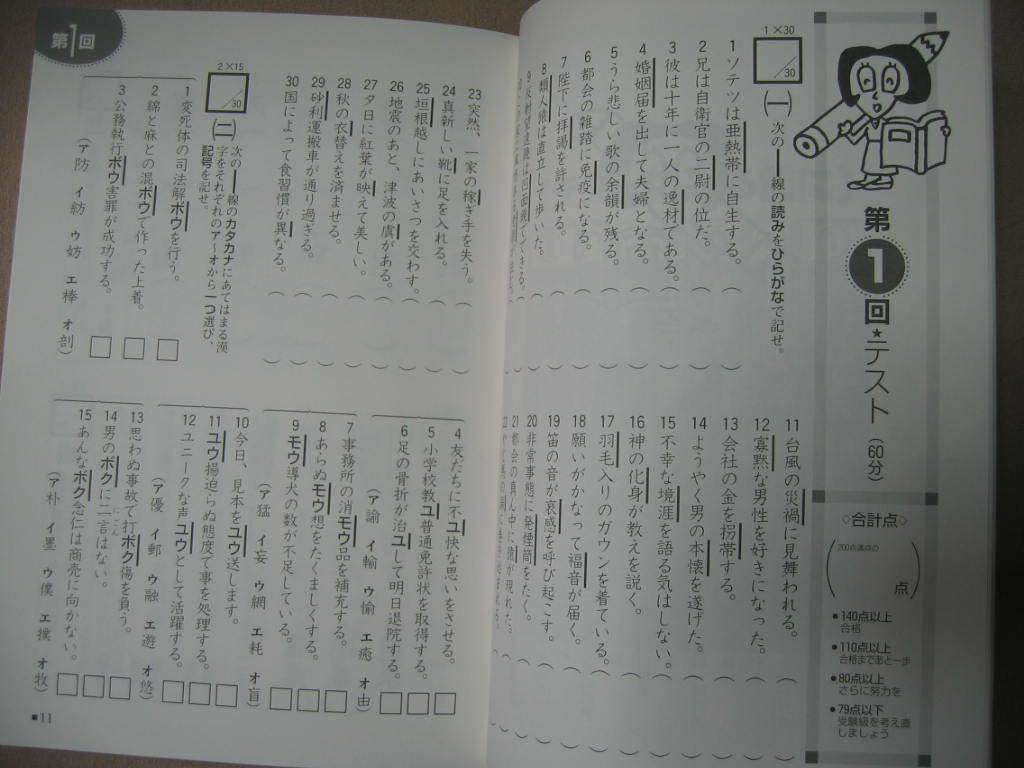 第1回★テスト(60分)
◇合計点◇
200点満点の
点
●140点以上
合格
●110点以上
合格まであと一歩
●80点以上
さらに努力を
●79点以下
受験級を考え直
しましょう
1×30
/30
(一) 次の――線の読みをひらがなで記せ。
1 ソテツは亜熱帯に自生する。
2 兄は自衛官の二尉の位だ。
3 彼は十年に一人の逸材である。
4 婚姻届を出して夫婦となる。
5 うら悲しい歌の余韻が残る。
6 都会の雑踏に免疫になる。
7 陛下に拝謁を許される。
8 類人猿は直立して歩いた。
11 台風の災禍に見舞われる。
12 寡黙な男性を好きになった。
13 会社の金を拐帯する。
14 ようやく男の本懐を遂げた。
15 不幸な境涯を語る気はしない。
16 神の化身が教えを説く。
17 羽毛入りのガウンを着ている。
18 願いがかなって福音が届く。
19 笛の音が哀感を呼び起こす。
20 非常事態に発煙筒をたく。
21 都会の真ん中に猿が現れた。
第1回
23 突然、一家の稼ぎ手を失う。
24 真新しい靴に足を入れる。
25 垣根越しにあいさつを交わす。
26 地震のあと、津波の虞がある。
27 夕日に紅葉が映えて美しい。
28 秋の衣替えを済ませる。
29 砂利運搬車が通り過ぎる。
30 国によって食習慣が異なる。
2×15
/30
(二) 次の――線のカタカナにあてはまる漢
字をそれぞれのア~オから一つ選び、
記号を記せ。
1 変死体の司法解ボウを行う。
2 綿と麻との混ボウで作った上着。
3 公務執行ボウ害罪が成功する。
(ア防 イ紡 ウ妨 エ棒 オ剖)
4 友だちに不ユ快な思いをさせる。
5 小学校教ユ普通免許状を取得する。
6 足の骨折が治ユして明日退院する。
(ア諭 イ輸 ウ愉 エ癒 オ由)
7 事務所の消モウ品を補充する。
8 あらぬモウ想をたくましくする。
9 モウ導犬の数が不足している。
(ア猛 イ妄 ウ網 エ耗 オ盲)
10 今日、見本をユウ送します。
11 ユウ揚迫らぬ態度で事を処理する。
12 ユニークな声ユウとして活躍する。
(ア優 イ郵 ウ融 エ遊 オ悠)
13 思わぬ事故で打ボク傷を負う。
14 男のボクに二言はない。
にごん
15 あんなボク念仁は商売に向かない。
(ア朴 イ墨 ウ僕 エ撲 オ牧)
■11